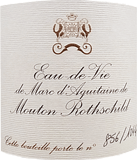 Eau-de-Vie
de Marc d'Aquitaine de
Mouton Rothschild
Cette bouteille porte le nº